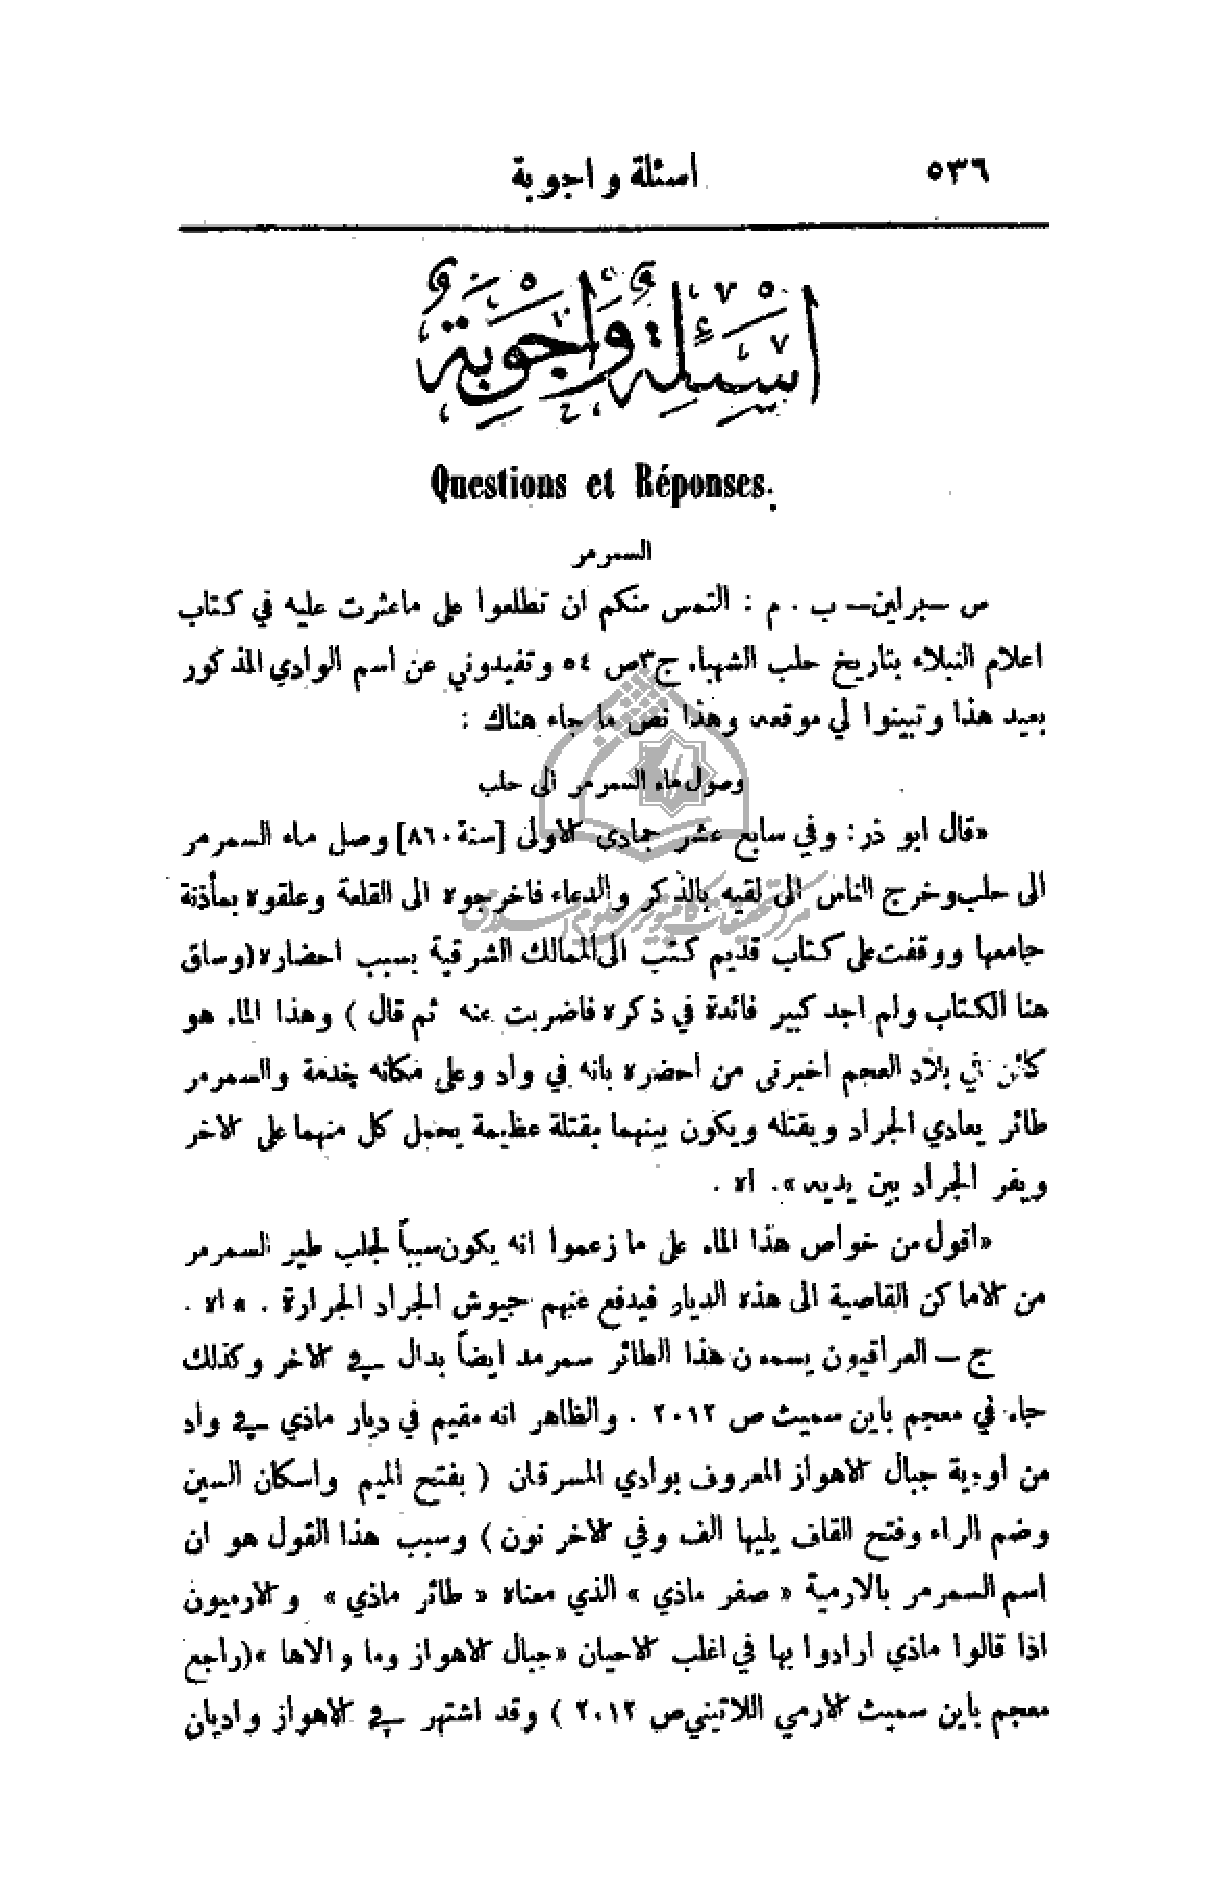 اسئلة و اجوبة ٥٣٦
أَسْئِلَةٌ وَأَجْوِبَةٌ
Questions et Réponses.
السمرمر
س – برلين – ب . م : التمس منكم ان تطلعوا على ما عثرت عليه في كتاب
اعلام النبلاء بتاريخ حلب الشهباء ج٣ص ٥٤ وتفيدوني عن اسم الوادي المذكور
بعيد هذا وتبينوا لي موقعه وهذا نص ما جاء هناك :
وصول ماء السمرمر الى حلب
«قال ابو ذر : وفي سابع عشر جمادى الاولى [سنة ٨٦٠] وصل ماء السمرمر
الى حلب وخرج الناس الى لقيه بالذكر والدعاء فاخرجوه الى القلعة وعلقوه بمأذنة
جامعها ووقفت على كتاب قديم كتب الى الممالك الشرقية بسبب احضاره (وساق
هنا الكتاب ولم اجد كبير فائدة في ذكره فاضربت عنه ثم قال ) وهذا الماء هو
كائن في بلاد العجم اخبرني من احضره بانه في واد وعلى مكانه خدمة والسمرمر
طائر يعادي الجراد ويقتله ويكون بينهما مقتلة عظيمة يحمل كل منهما على الاخر
ويفر الجراد بين يديه». اه .
«اقول من خواص هذا الماء على ما زعموا انه يكون سبباً لجلب طير السمرمر
من الاماكن القاصية الى هذه الديار فيدفع عنهم جيوش الجراد الجرارة . » اه .
ج – العراقيون يسمون هذا الطائر سمرمد ايضاً بدال في الاخر وكذلك
جاء في معجم باين سميث ص ٢٠١٢ . والظاهر انه مقيم في ديار ماذي في واد
من اودية جبال الاهواز المعروف بوادي المسرقان ( بفتح الميم واسكان السين
وضم الراء وفتح القاف يليها الف وفي الاخر نون ) وسبب هذا القول هو ان
اسم السمرمر بالارمية « صفر ماذي » الذي معناه « طائر ماذي » والارميون
اذا قالوا ماذي ارادوا بها في اغلب الاحيان «جبال الاهواز وما والاها »(راجع
معجم باين سميث الارمي اللاتيني ص ٢٠١٢ ) وقد اشتهر في الاهواز واديان